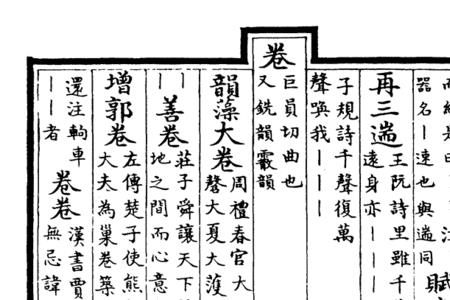 器名丨速也與遄同
再三遄
王阮詩里雖千
遠身亦丨丨丨
子規詩千聲復萬
聲喚我丨丨丨丨
卷
巨員切曲也
又銑韻霰韻
韻藻大卷
周禮春官大
磬大夏大濩
丨丨善卷
莊子舜讓天下
地之間而心意
增郭卷
左傳楚子使熊
大夫為巢卷築
還注輈車
丨丨者
卷卷
漢書賈
無忌諱